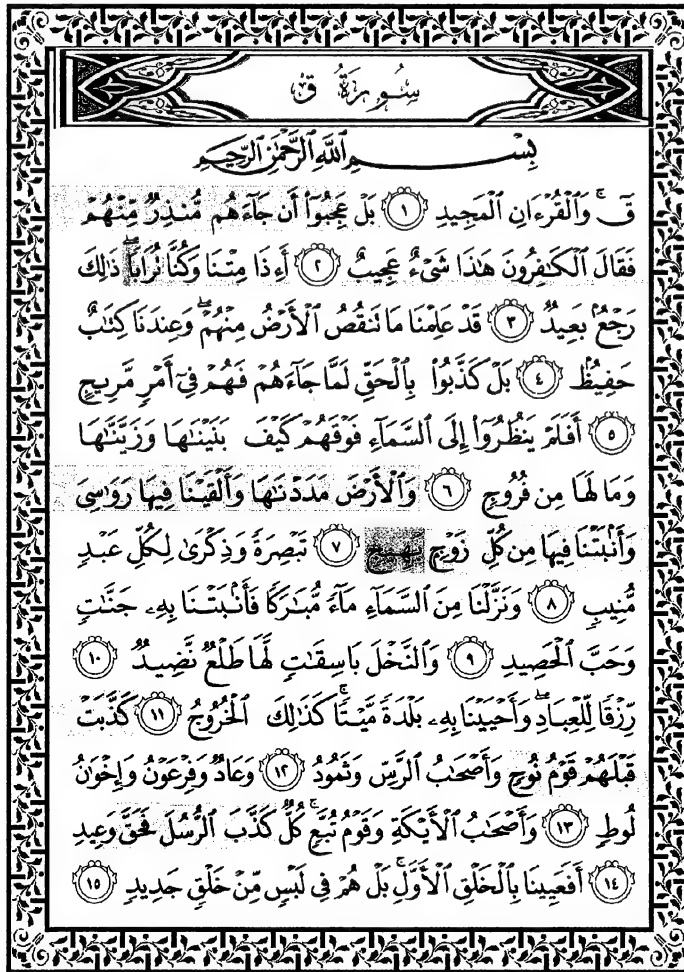 سُورَةُ ق
بِسْمِ ٱللَّهِ ٱلرَّحْمَٰنِ ٱلرَّحِيمِ
قٓ ۚ وَٱلْقُرْءَانِ ٱلْمَجِيدِ ١ بَلْ عَجِبُوٓا۟ أَن جَآءَهُم مُّنذِرٌ مِّنْهُمْ
فَقَالَ ٱلْكَٰفِرُونَ هَٰذَا شَىْءٌ عَجِيبٌ ٢ أَءِذَا مِتْنَا وَكُنَّا تُرَابًا ۖ ذَٰلِكَ
رَجْعٌۢ بَعِيدٌ ٣ قَدْ عَلِمْنَا مَا تَنقُصُ ٱلْأَرْضُ مِنْهُمْ ۖ وَعِندَنَا كِتَٰبٌ
حَفِيظٌۢ ٤ بَلْ كَذَّبُوا۟ بِٱلْحَقِّ لَمَّا جَآءَهُمْ فَهُمْ فِىٓ أَمْرٍ مَّرِيجٍ
٥ أَفَلَمْ يَنظُرُوٓا۟ إِلَى ٱلسَّمَآءِ فَوْقَهُمْ كَيْفَ بَنَيْنَٰهَا وَزَيَّنَّٰهَا
وَمَا لَهَا مِن فُرُوجٍ ٦ وَٱلْأَرْضَ مَدَدْنَٰهَا وَأَلْقَيْنَا فِيهَا رَوَٰسِىَ
وَأَنۢبَتْنَا فِيهَا مِن كُلِّ زَوْجٍۭ بَهِيجٍ ٧ تَبْصِرَةً وَذِكْرَىٰ لِكُلِّ عَبْدٍ
مُّنِيبٍ ٨ وَنَزَّلْنَا مِنَ ٱلسَّمَآءِ مَآءً مُّبَٰرَكًا فَأَنۢبَتْنَا بِهِۦ جَنَّٰتٍ
وَحَبَّ ٱلْحَصِيدِ ٩ وَٱلنَّخْلَ بَاسِقَٰتٍ لَّهَا طَلْعٌ نَّضِيدٌ ١٠
رِّزْقًا لِّلْعِبَادِ ۖ وَأَحْيَيْنَا بِهِۦ بَلْدَةً مَّيْتًا ۚ كَذَٰلِكَ ٱلْخُرُوجُ ١١ كَذَّبَتْ
قَبْلَهُمْ قَوْمُ نُوحٍ وَأَصْحَٰبُ ٱلرَّسِّ وَثَمُودُ ١٢ وَعَادٌ وَفِرْعَوْنُ وَإِخْوَٰنُ
لُوطٍ ١٣ وَأَصْحَٰبُ ٱلْأَيْكَةِ وَقَوْمُ تُبَّعٍ ۚ كُلٌّ كَذَّبَ ٱلرُّسُلَ فَحَقَّ وَعِيدِ
١٤ أَفَعَيِينَا بِٱلْخَلْقِ ٱلْأَوَّلِ ۚ بَلْ هُمْ فِى لَبْسٍ مِّنْ خَلْقٍ جَدِيدٍ ١٥